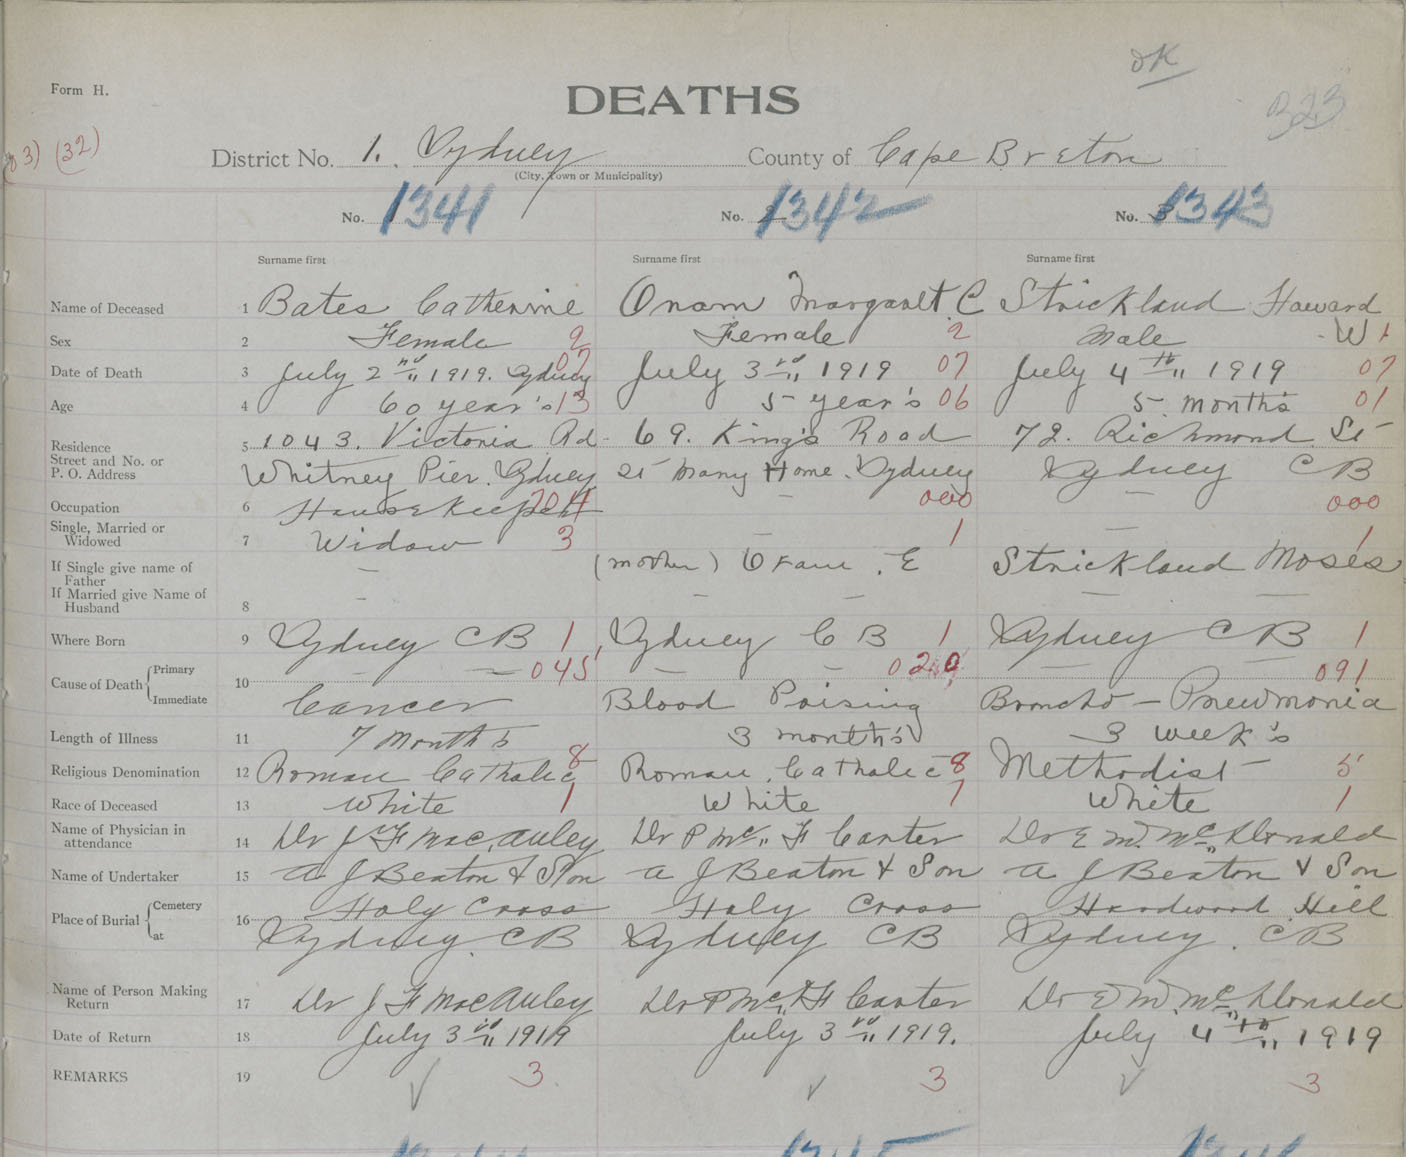 OK
Form H.
DEATHS
323
(32)
District No. 1. Sydney County of Cape Breton
(City, Town or Municipality)
No. 1341 No. 1342 No. 1343
Surname first Surname first Surname first
Name of Deceased 1 Bates Catherine Oram Margaret C Strickland Haward W
Sex 2 Female 2 Female 2 Male 1
Date of Death 3 July 2nd 1919. Sydney 07 July 3rd 1919 07 July 4th 1919 07
Age 4 60 year's 13 5 year's 06 5 months 01
Residence 5 1043. Victoria Rd 69. King's Road 72. Richmond St
Street and No. or
P. O. Address Whitney Pier. Sydney Home. Sydney Sydney CB
Occupation 6 Housekeeper 204 — 000 — 000
Single, Married or
Widowed 7 Widow 3 — 1 — 1
If Single give name of
Father — (mother) Oram. E Strickland Moses
If Married give Name of
Husband 8 — — — — —
Where Born 9 Sydney CB 1 Sydney CB 1 Sydney CB 1
Cause of Death Primary 10 — 045 — — 020 — — 091
Immediate Cancer Blood Poising Broncho-Pneumonia
Length of Illness 11 7 Month's 3 months 3 week's
Religious Denomination 12 Roman Catholic 8 Roman. Catholic 8 Methodist 5
Race of Deceased 13 White 1 White 1 White 1
Name of Physician in
attendance 14 Dr J F MacAuley Dr P Mc F Carter Dr E M. McDonald
Name of Undertaker 15 A J Beaton & Son A J Beaton & Son A J Beaton & Son
Place of Burial Cemetery 16 Holy Cross Holy Cross Hardwood Hill
at Sydney. CB Sydney CB Sydney. CB
Name of Person Making
Return 17 Dr J F MacAuley Dr P Mc F Carter Dr E M. McDonald
Date of Return 18 July 3rd 1919 July 3rd 1919. July 4th 1919
REMARKS 19 3 3 3